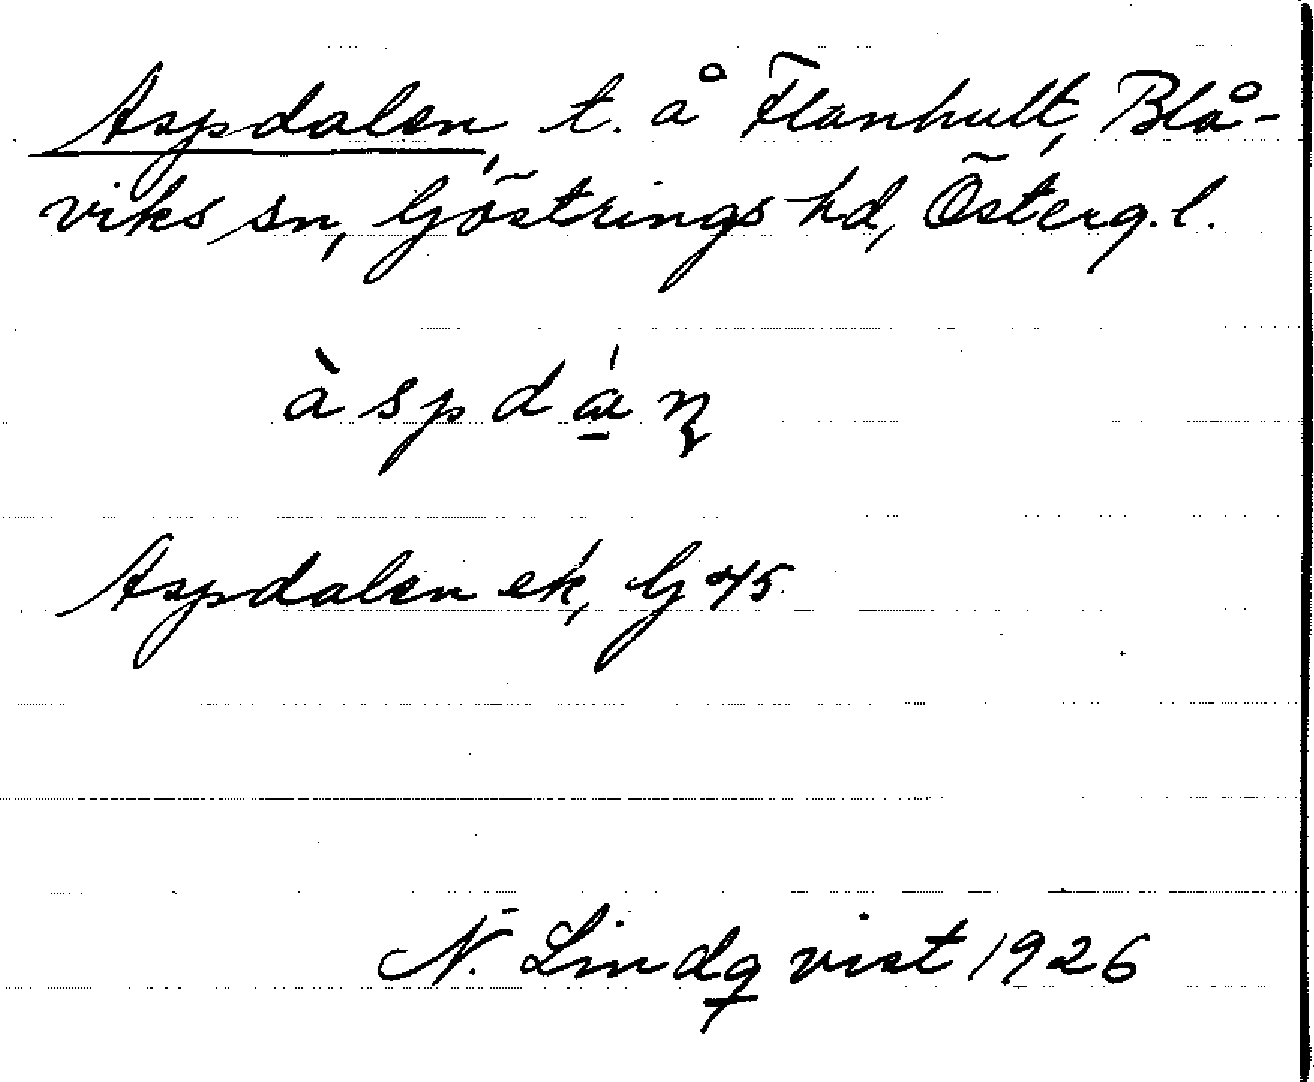 Aspdalen, t. å Flanhult, Blå-
viks sn, Göstrings hd, Österg. l.
àspdán
Aspdalen ek, G 45
N. Lindqvist 1926